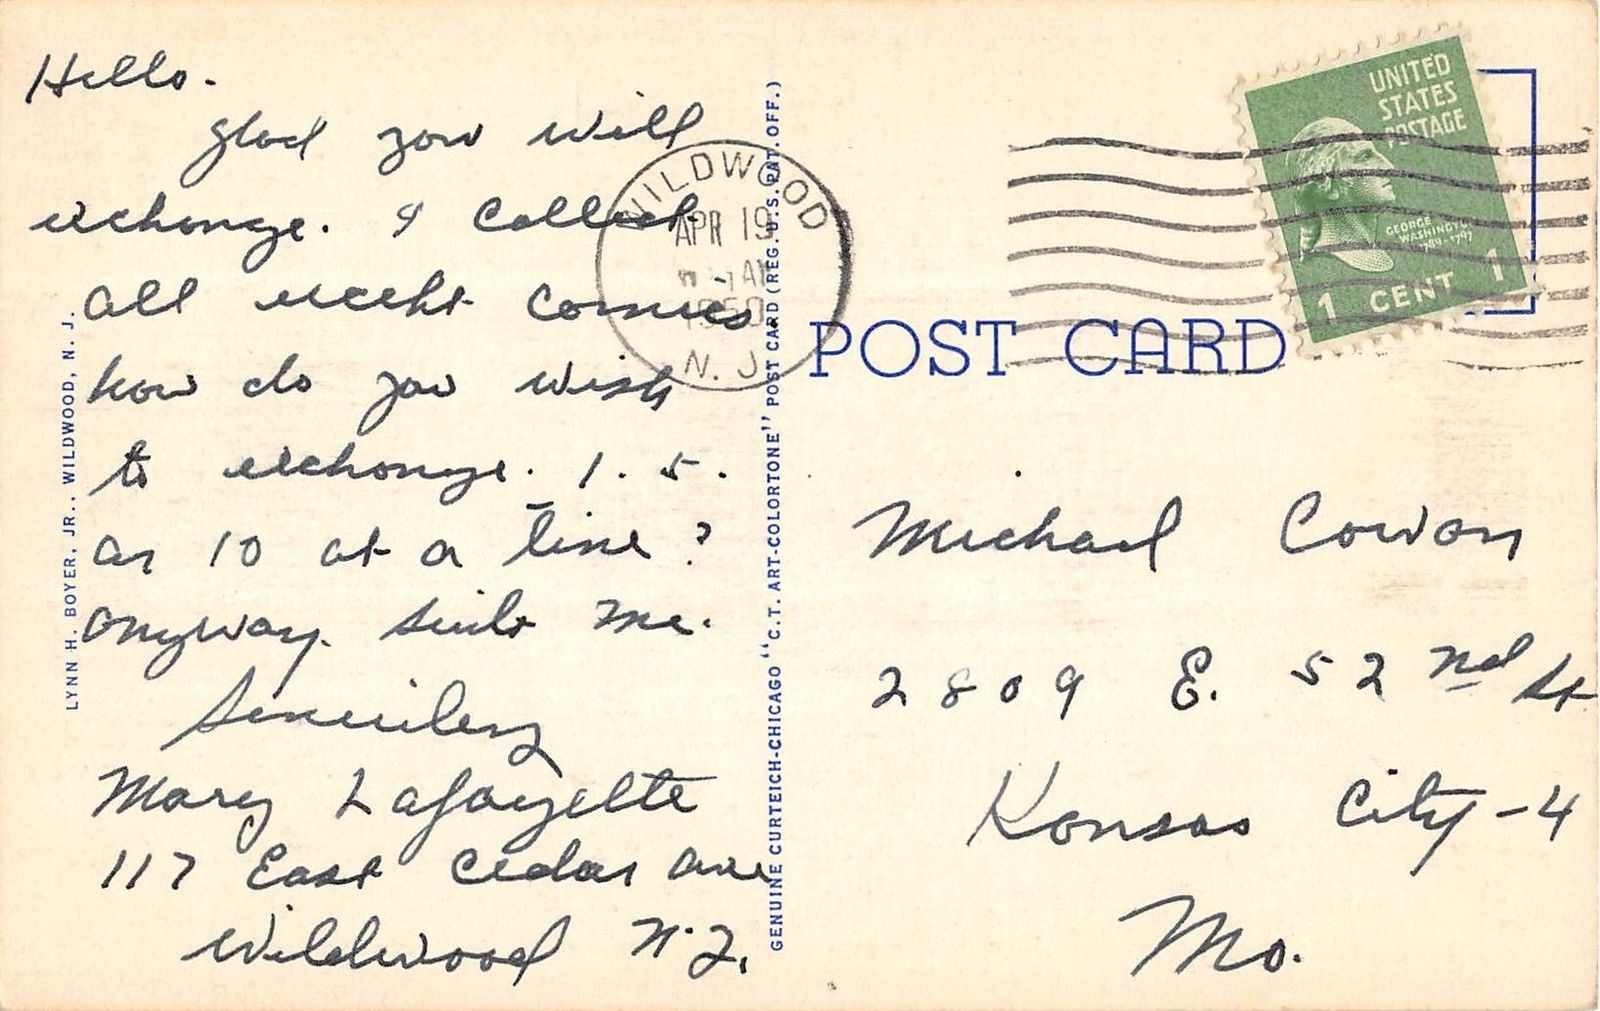 Hello.
glad you will
exchange. I collect
all except comics.
how do you wish
to exchange. 1. 5.
or 10 at a time?
anyway. suits me.
Sincerely
Mary Lafayette
117 East Cedar Ave
Wildwood N.J.
LYNN H. BOYER, JR., WILDWOOD, N. J.
WILDWOOD
APR 19
AM
1950
N. J.
GENUINE CURTEICH-CHICAGO "C.T. ART-COLORTONE" POST CARD (REG. U.S. PAT. OFF.)
UNITED
STATES
POSTAGE
GEORGE
WASHINGTON
1789-1797
1 CENT 1
POST CARD
Michael Cowan
2809 E. 52nd St
Kansas City-4
Mo.